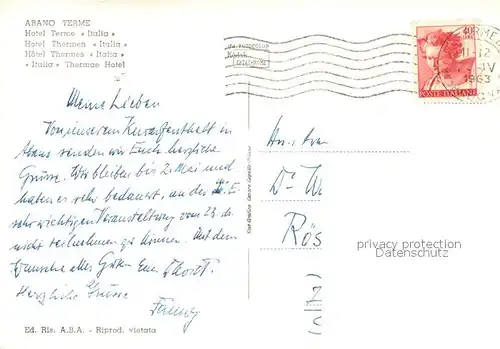 ABANO TERME
Hotel Terme « Italia »
Hotel Thermen « Italia »
Hôtel Thermes « Italia »
« Italia » Thermae Hotel
Meine Lieben
Von unserem Kuraufenthalt in
Abano senden wir Euch herzliche
Grüsse. Wir bleiben bis 2. Mai und
haben es sehr bedauert, an der
sehr wichtigen Veranstaltung vom 23. ds.
nicht teilnehmen zu können. Mit dem
Wunsche alles Guten Eure
Herzliche Grüsse
Fanny
Ed. Ris. A.B.A. - Riprod. vietata
POSTE ITALIANE
1963
Dr
Rös
privacy protection
Datenschutz